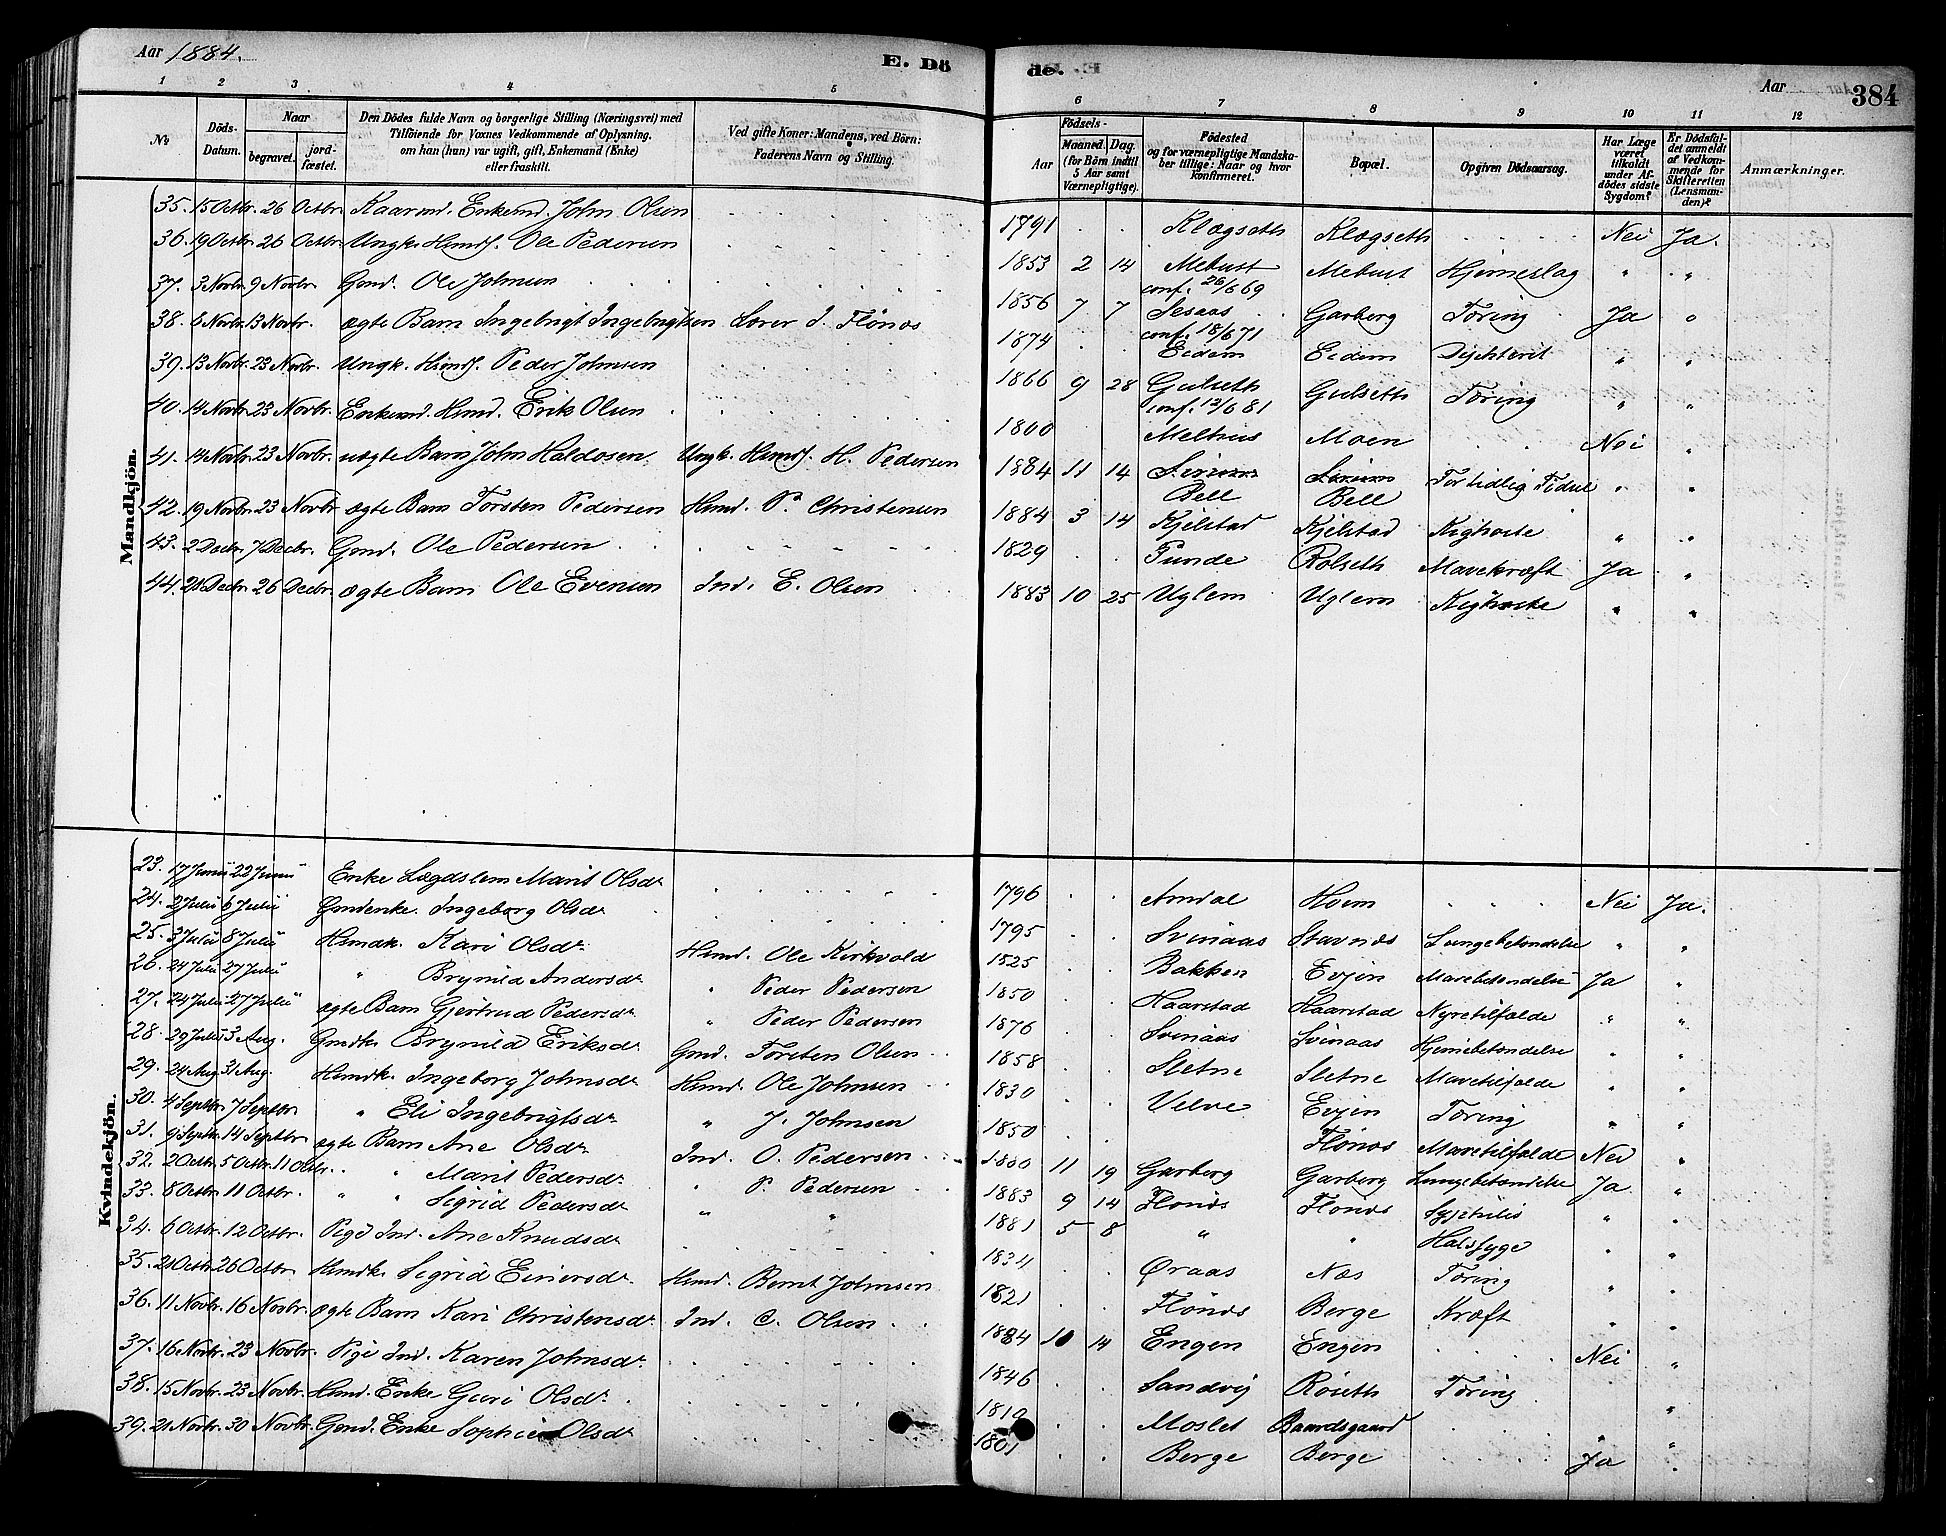 Aar 1884.
E. Dö
de.
Aar
384
1 2 3 4 5
6 7 8 9 10 11 12
No
Döds-Datum.
Naar
begravet.
jordfæstet.
Den Dödes fulde Navn og borgerlige Stilling (Næringsvei) med Tilföiende for Voxnes Vedkommende af Oplysning, om han (hun) var ugift, gift, Enkemand (Enke) eller fraskilt.
Ved gifte Koner: Mandens, ved Börn: Faderens Navn og Stilling.
Födsels-
Aar
Maaned. Dag.
(for Börn indtil 5 Aar samt Værnepligtige).
Födested og for værnepligtige Mandskaber tillige: Naar og hvor konfirmeret.
Bopæl.
Opgiven Dödsaarsag.
Har Læge været tilkaldt under Afdödes sidste Sygdom?
Er Dödsfaldet anmeldt af Vedkommende for Skifteretten (Lensmanden)?
Anmærkninger.
Mandkjön.
35. 15 Octbr. 26 Octbr. Kaarmd. Enkemd. John Olsen 1791 Klegseth Klegseth Nei Ja.
36. 19 Octbr. 26 Octbr. Ungk. Hmdf. Ole Pedersen 1853 2 14 Mebust conf. 26/6 69 Mebust Hjerneslag " "
37. 3 Novbr. 9 Novbr. Gmd. Ole Johnsen 1856 7 7 Sesaas conf. 18/6 71 Garberg Tæring Ja "
38. 6 Novbr. 13 Novbr. ægte Barn Ingebrigt Ingebrigtsen Lærer I. Flönæs 1874 Eidem Eidem Dyphterit " "
39. 13 Novbr. 23 Novbr. Ungk. Hmdf. Peder Johnsen 1866 9 28 Gulseth conf. 12/6 81 Gulseth Tæring " "
40. 14 Novbr. 23 Novbr. Enkemd. Hmd. Erik Olsen 1800 Melhus Moen Nei "
41. 14 Novbr. 23 Novbr. uægte Barn John Haldosen Ungk. Hmdf. H. Pedersen 1884 11 14 Bell Bell For tidlig Födsel " "
42. 19 Novbr. 23 Novbr ægte Barn Torsten Pedersen Hmd. P. Christensen 1884 3 14 Kjelstad Kjelstad Kighoste " "
43. 2 Decbr. 7 Decbr. Gmd. Ole Pedersen 1829 Rolseth Mavekræft Ja "
44. 21 Decbr. 26 Decbr. ægte Barn Ole Evensen Ind. E. Olsen 1883 10 25 Uglem Uglem Kighoste " "
Kvindekjön.
23. 17 Juni 22 Juni Enke Lægdslem Marit Olsdr. 1796 Amdal Hoem Nei Ja.
24. 2 Juli 6 Juli Gmdenke. Ingeborg Olsdr. 1795 Svinaas Stavnæs Lungebetændelse " "
25. 3 Juli 8 Juli Hmdk. Kari Olsdr. Hmd. Ole Kirkvold 1825 Bakken Evjen Mavebetændelse Ja "
26. 24 Juli 27 Juli " Brynild Andersdr. " Peder Pedersen 1850 Haarstad Haarstad Nyretilfælde " "
27. 24 Juli 27 Juli ægte Barn Gjertrud Pedersdr. " Peder Pedersen 1876 Svinaas Svinaas Hjernebetændelse " "
28. 29 Juli 3 Aug. Gmdk. Brynild Eriksdr. Gmd. Torsten Olsen 1858 Sletne Sletne Mavetilfælde " "
29. 24 Aug 31 Aug. Hmdk. Ingeborg Johnsdr. Hmd. Ole Johnsen 1830 Velve Evjen Tæring " "
30. 4 Septbr. 7 Septbr " Eli Ingebrigtsdr. " J. Johnsen 1850 Flönæs Mavetilfælde Nei "
31. 9 Septbr. 14 Septbr ægte Barn Ane Olsdr. Ind. O. Pedersen 1880 11 19 Garberg Garberg Lungebetændelse Ja "
32. 2 Octbr. 5 Octbr. 11 Octbr. " Marit Pedersdr. " P. Pedersen 1883 9 14 Flönæs Flönæs Syphilis " "
33. 8 Octbr. 11 Octbr. " " Sigrid Pedersdr. " " 1881 5 8 " " Halssyge " "
34. 6 Octbr. 12 Octbr. Pige Ind. Ane Knudsdr. 1834 Öraas Næs Tæring " "
35. 21 Octbr. 26 Octbr. Hmdk. Sigrid Einersdr. Hmd. Bernt Johnsen 1821 Flönæs Berge Kræft " "
36. 11 Novbr. 16 Novbr. ægte Barn Kari Christensdr. Ind. C. Olsen 1884 10 14 Engen Engen Nei "
37. 16 Novbr. 23 Novbr. Pige Ind. Karen Johnsdr. 1846 Sandvij Röseth Tæring "
38. 15 Novbr. 23 Novbr. Hmd. Enke Guri Olsdr. 1810 Moslet Baardsgaard " "
39. 21 Novbr. 30 Novbr. Gmd. Enke Sophie Olsdr. 1801 Berge Berge Ja "